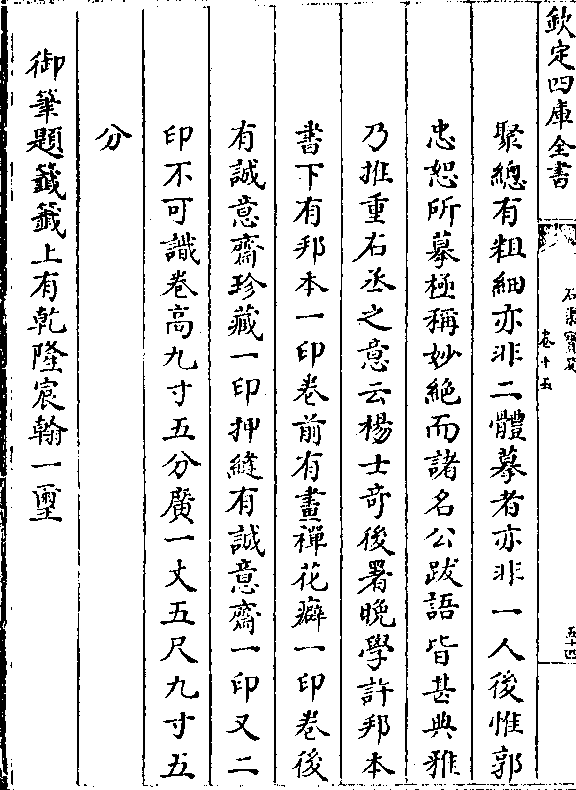 欽定四庫全書
石渠寶笈
卷十五
五十四
聚總有粗細亦非二體摹者亦非一人後惟郭
忠恕所摹極稱妙絶而諸名公跋語皆甚典雅
乃推重右丞之意云楊士竒後署晚學許邦本
書下有邦本一印卷前有畫禪花癖一印卷後
有誠意齋珍藏一印押縫有誠意齋一印又二
印不可識卷高九寸五分廣一丈五尺九寸五
分
御筆題籤籤上有乾隆宸翰一璽